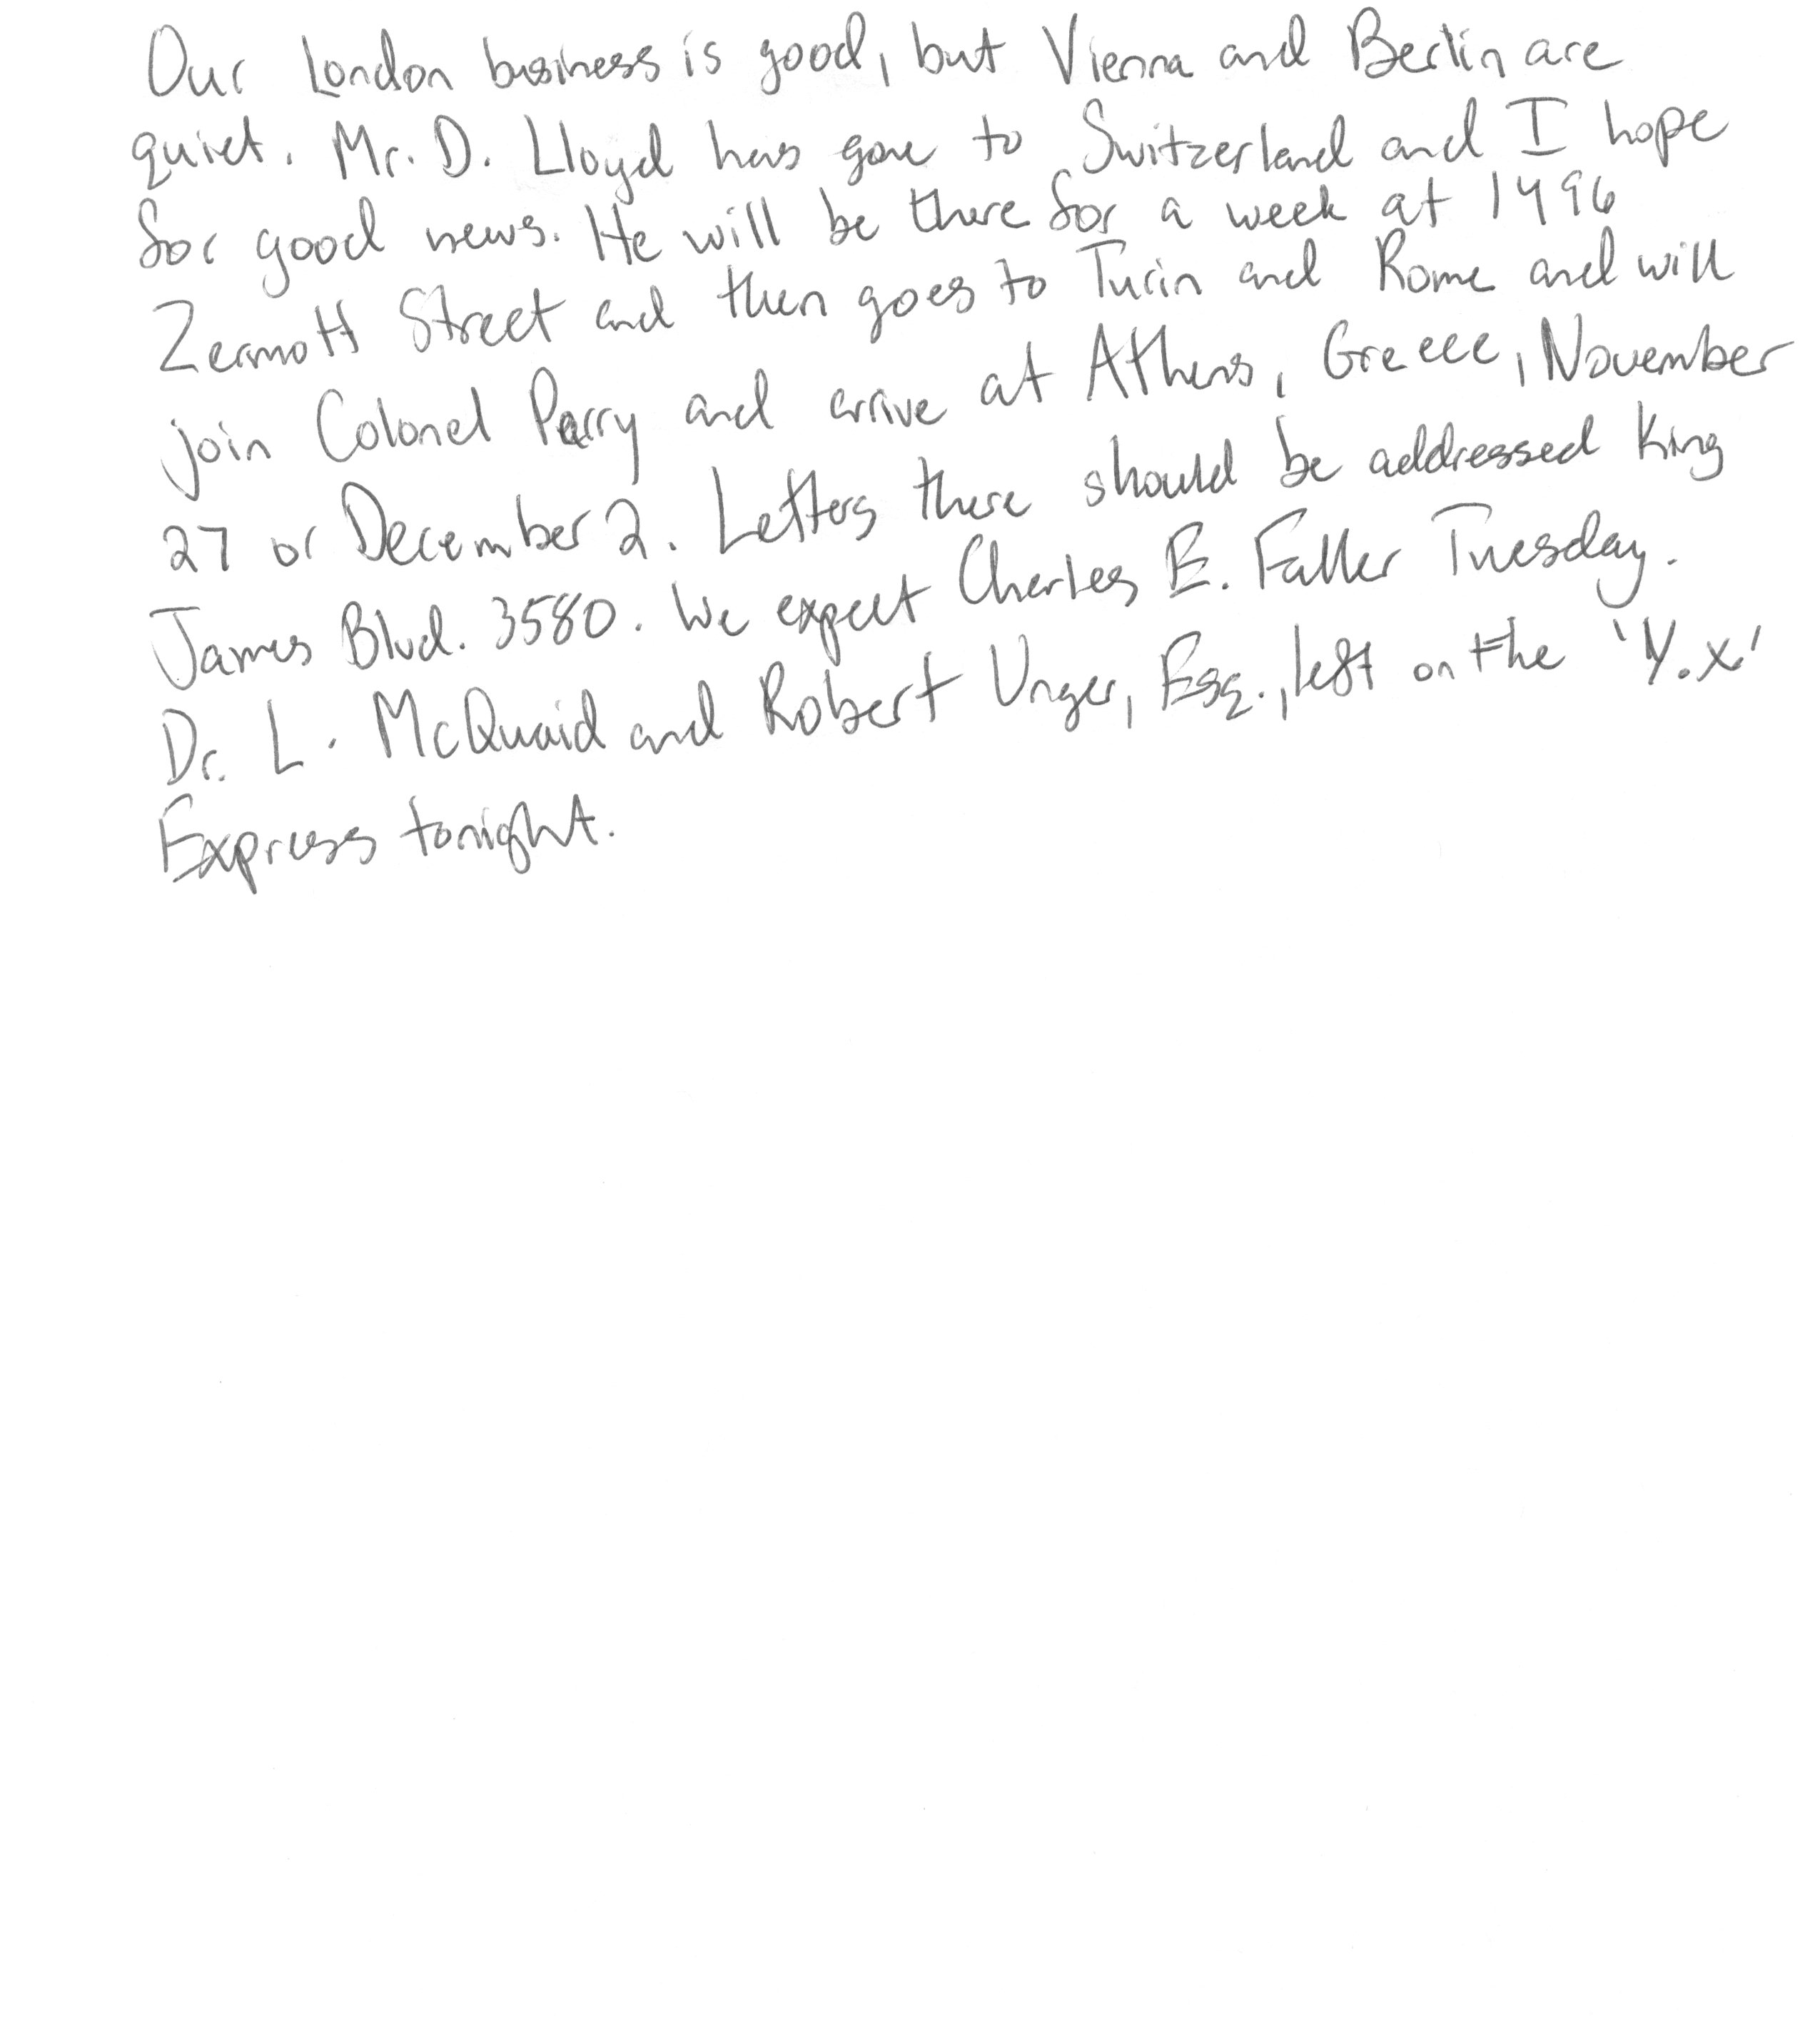 Our London business is good, but Vienna and Berlin are
quiet. Mr. D. Lloyd has gone to Switzerland and I hope
for good news. He will be there for a week at 1496
Zermott Street and then goes to Turin and Rome and will
join Colonel Parry and arrive at Athens, Greece, November
27 or December 2. Letters there should be addressed King
James Blvd. 3580. We expect Charles E. Fuller Tuesday.
Dr. L. McQuaid and Robert Unger, Esq., left on the 'Y.X'
Express tonight.